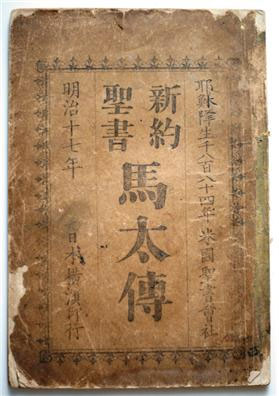 耶穌降生千八百八十四年 米國聖書會社
新約
聖書
馬太傳
明治十七年 日本横濱印行